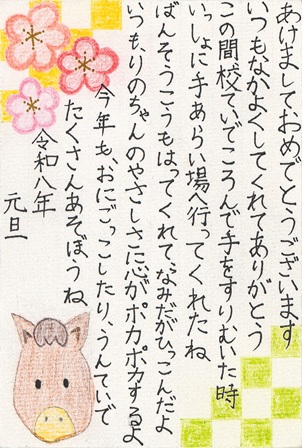 あけましておめでとうございます
いつもなかよくしてくれてありがとう
この間校ていでころんで手をすりむいた時
いっしょに手あらい場へ行ってくれたね
ばんそうこうもはってくれて、なみだがひっこんだよ
いつも、りのちゃんのやさしさに心がポカポカするよ
今年も、おにごっこしたり、うんていで
たくさんあそぼうね
令和八年
元旦